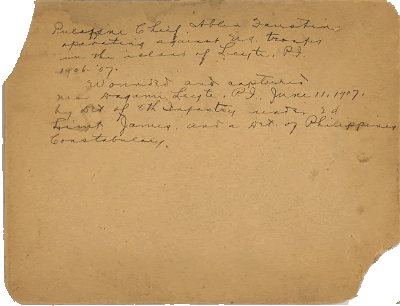 Pulajane Chief Ablen Faustino,
operating against U.S. troops
in the island of Leyte, P.I.
1906-'07.
Wounded and captured
near Dagami, Leyte, P.I. June 11, 1907.
by Det of 8th Infantry under 2d
Lieut James, and a Det. of Philippines
Constabulary.